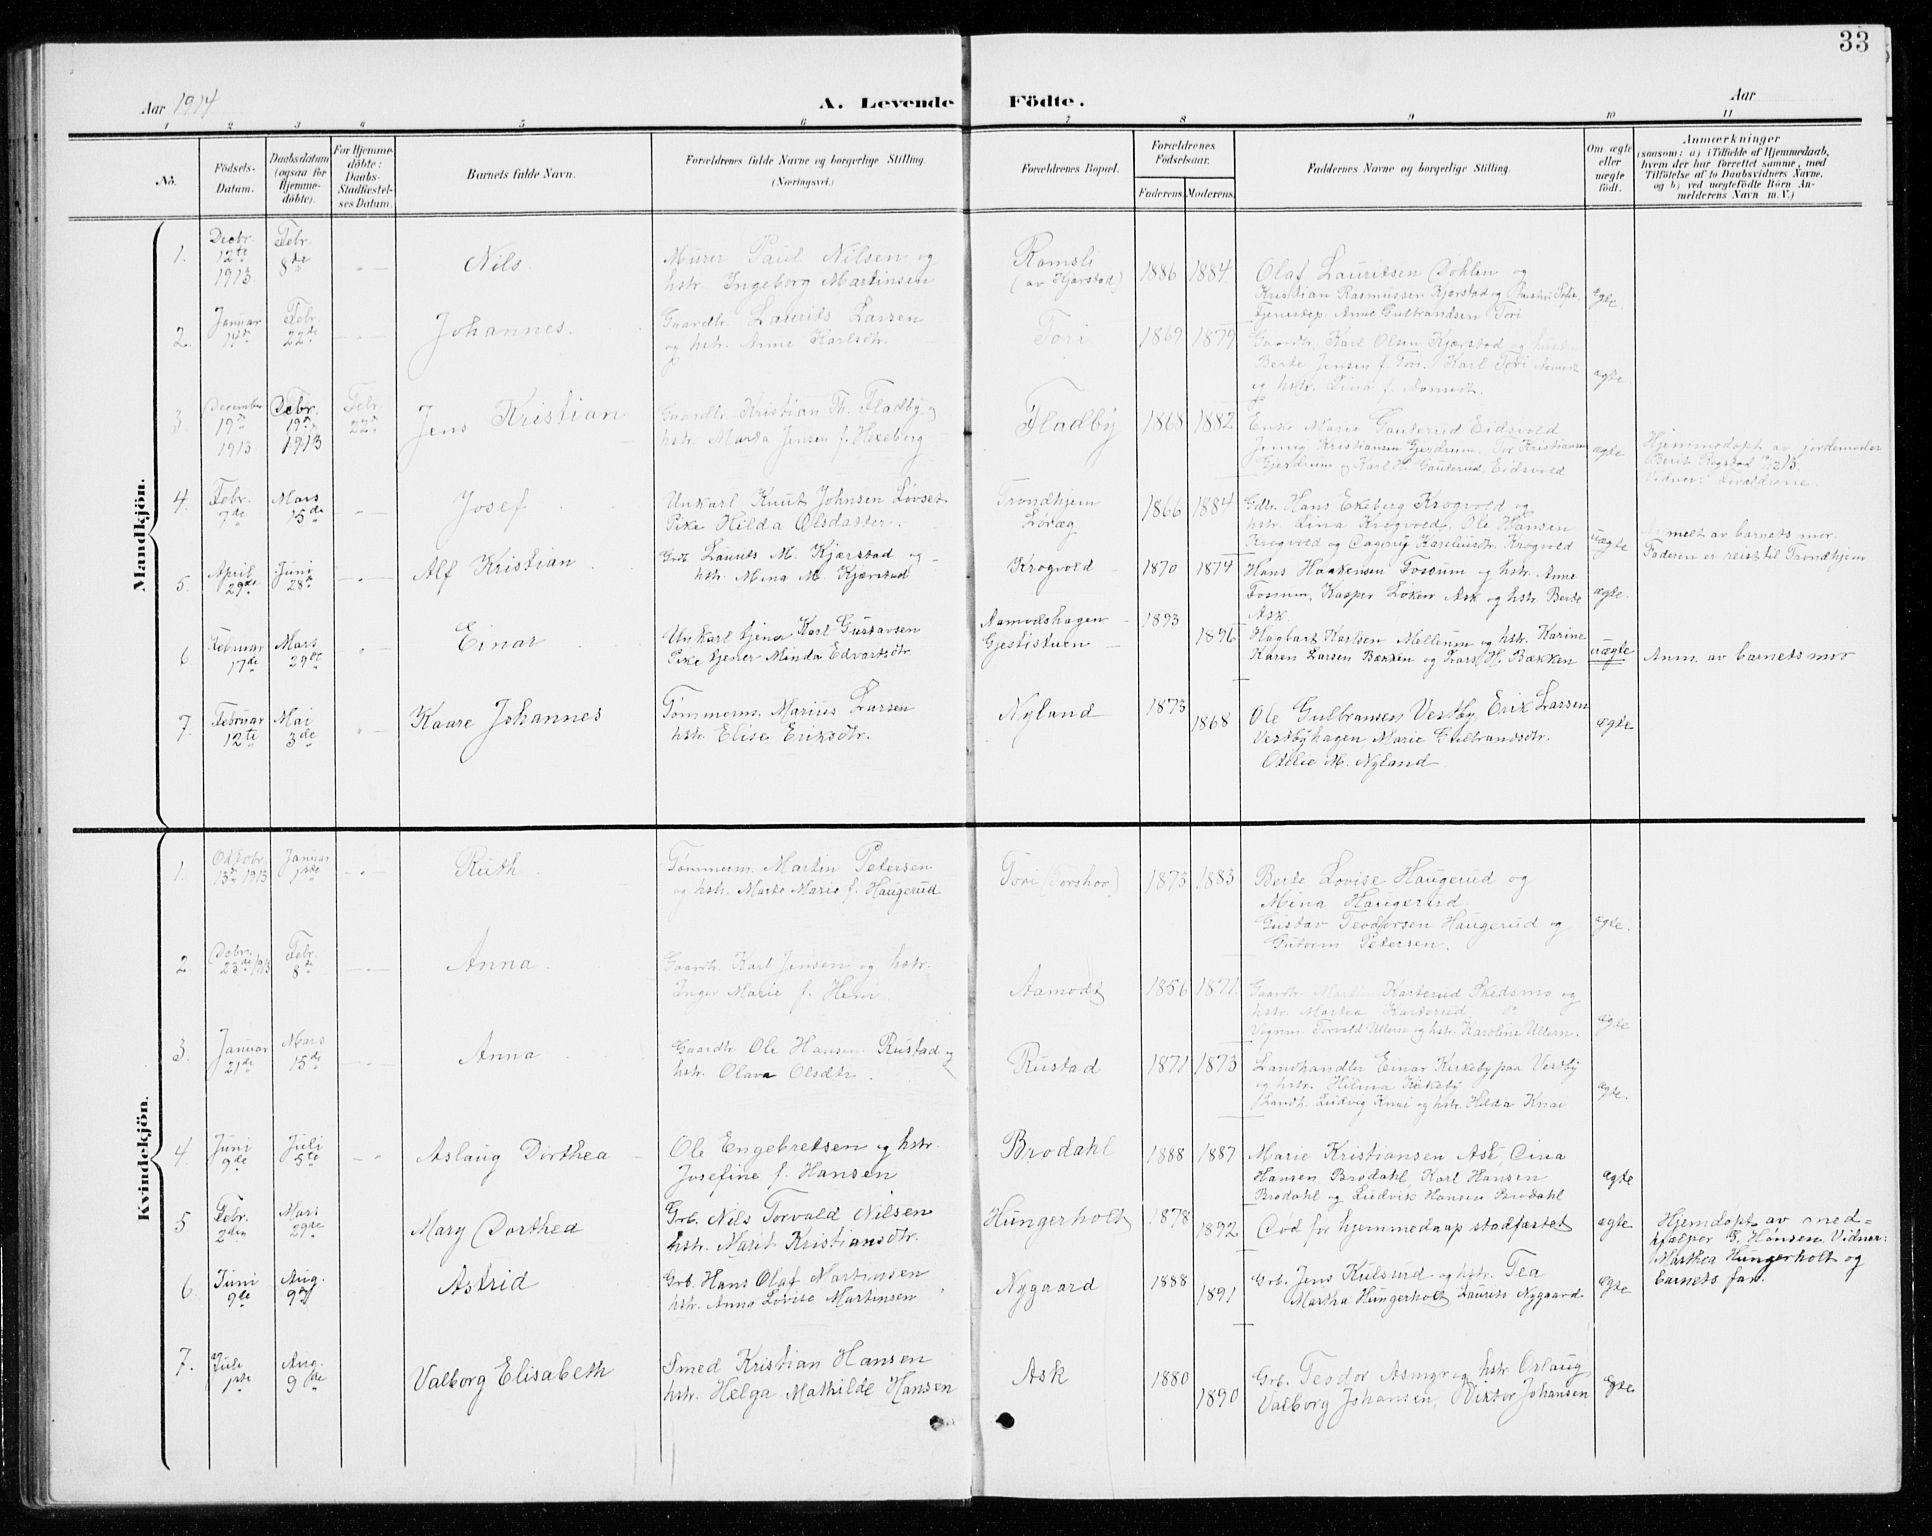 33
Aar 1914
A. Levende Födte.
Aar
1 2 3 4 5 6 7 8 9 10 11
No.
Födsels-Datum.
Daabsdatum (ogsaa for Hjemmedöbte).
For Hjemmedöbte: Daabs-Stadfestelses Datum.
Barnets fulde Navn.
Forældrenes fulde Navne og borgerlige Stilling. (Næringsvei.)
Forældrenes Bopæl.
Forældrenes Födselsaar.
Faderens. Moderens.
Faddernes Navne og borgerlige Stilling.
Om ægte eller uægte födt.
Anmærkninger
(saasom: a) i Tilfælde af Hjemmedaab, hvem der har forrettet samme, med Tilföielse af to Daabsvidners Navne, og b) ved uægtefödte Börn Anmelderens Navn m. V.)
Mandkjön.
1. Decbr. 12te 1913 Febr. 8de Nils. Murer Paul Nilsen og hstr. Ingeborg Martinsen Ramsli (av Kjærstad) 1886 1884 Olaf Lauritsen Døhlen og
Kristian Rasmussen Kjærstad og
Tjenestep. Anne Gulbrandsen Tori ægte.
2. Januar 14de Febr. 22de Johannes. Gaardbr. Laurits Larsen og hstr. Anne Karlsdtr. Tori 1869 1879 Gaardbr. Karl Olsen Kjærstad og hustru
Berte Jensen f. Tori. Karl Tori Aamodt
og hstr. Lina f. Aamodt. ægte.
3 December 19de 1913 Debr. 19de 1913 Febr 22de Jens Kristian Gaardbr. Kristian Th. Fladby og hstr. Marta Jensen f. Hexeberg Fladby 1868 1882 Enke Marie Gauterud Eidsvold
Jenny Kristiansen Gjerdrum. Tor Kristiansen
Gjerdrum og Karl H. Gauterud, Eidsvold ægte Hjemmedøpt av jordemoder
Berit Rogstad
Vidner: Forældrene.
4. Febr. 7de Mars 15de Josef Unkarl Knut Johnsen Løvset Pike Hilda Olsdatter. Trondhjem Løræg 1866 1884 Gdbr. Hans Ekeberg Krogvold og
hstr. Lina Krogvold. Ole Hansen
Krogvold og Dagny Kareliusdtr. Krogvold uægte Anmelt av barnets mor.
Faderen er reist til Trondhjem
5. April 29de Juni 28de Alf Kristian Grb. Laurits M. Kjærstad og hstr. Mina M. Kjærstad Krogvold 1870 1874 Hans Haakensen Fossum og hstr. Anne
Fossum, Kasper Løken Ask og hstr Berte
Ask ægte.
6 Februar 17de Mars 29de Einar Unkarl tjener Karl Gustavsen Pike tjener Minda Edvartsdtr Aamodshagen Gjestistuen 1893 1896 Hagbart Karlsen Mellerum og hstr. Karine
Karen Larsen Bækken og Lars H. Bækken uægte Anm. av barnets mor
7. Februar 12te Mai 3de Kaare Johannes Tømmerm. Marius Larsen hstr. Elise Eriksdtr. Nyland 1873 1868 Ole Gulbransen Vestby, Erik Larsen
Vestbyhagen Marie Gulbrandsdtr.
Otelie M. Nyland ægte
Kvindekjön.
1. Oktobr. 13de 1913 Januar 1ste Ruth Tømmerm. Martin Petersen og hstr. Marte Marie f. Haugerud Tori (Torshov) 1873 1883 Berte Lovise Haugerud og
Mina Haugerud
Gustav Teodorsen Haugerud og
Gutorm Petersen. ægte.
2. Debr. 23de 1913 Febr. 8de Anna. Gaardbr. Karl Jensen og hstr. Inger Marie f. Heni Aamodt 1856 1871. Gaardbr. Martin Karterud Skedsmo og
hstr. Martea Karterud
Vognm. Torvald Ullern og hstr. Karoline Ullern. ægte
3. Januar 21de Mars 15de Anna Gaardbr. Ole Hansen Rustad og hstr. Olava Olsdtr. Rustad 1871 1873 Landhandler Einar Kirkeby paa Vestby
og hstr. Hilma Kirkeby
Landh. Ludvig Knai og hstr. Hilda Knai ægte.
4 Juni 9de Juli 5te Aslaug Dorthea Ole Engebretsen og hstr. Josefine f. Hansen Brodahl 1888 1887 Marie Kristiansen Ask, Cina
Hansen Brodahl, Karl Hansen
Brodahl og Ludvik Hansen Brodahl ægte
5 Febr. 2den Mars 29de Mary Dorthea Grb. Nils Torvald Nilsen hstr. Marit Kristiansdtr. Hungerholt 1878 1892 Død før hjemmedaap stadfæstet ægte Hjemdøpt av med=
hjælper G. Hansen. Vidner:
Marthea Hungerholt og
barnets far.
6. Juni 9de Aug. 9de Astrid Grb. Hans Olaf Martinsen hstr. Anna Lovise Martinsen Nygaard 1888 1891 Grb. Jens Kulsrud og hstr. Tea
Martha Hungerholt Laurits Nygaard ægte
7. Juli 1ste Aug. 9de Valborg Elisabeth Smed Kristian Hansen hstr. Helga Mathilde Hansen Ask 1880 1890 Grb. Teodor Asmyr og hstr. Oslaug
Valborg Johansen, Viktor Johansen ægte